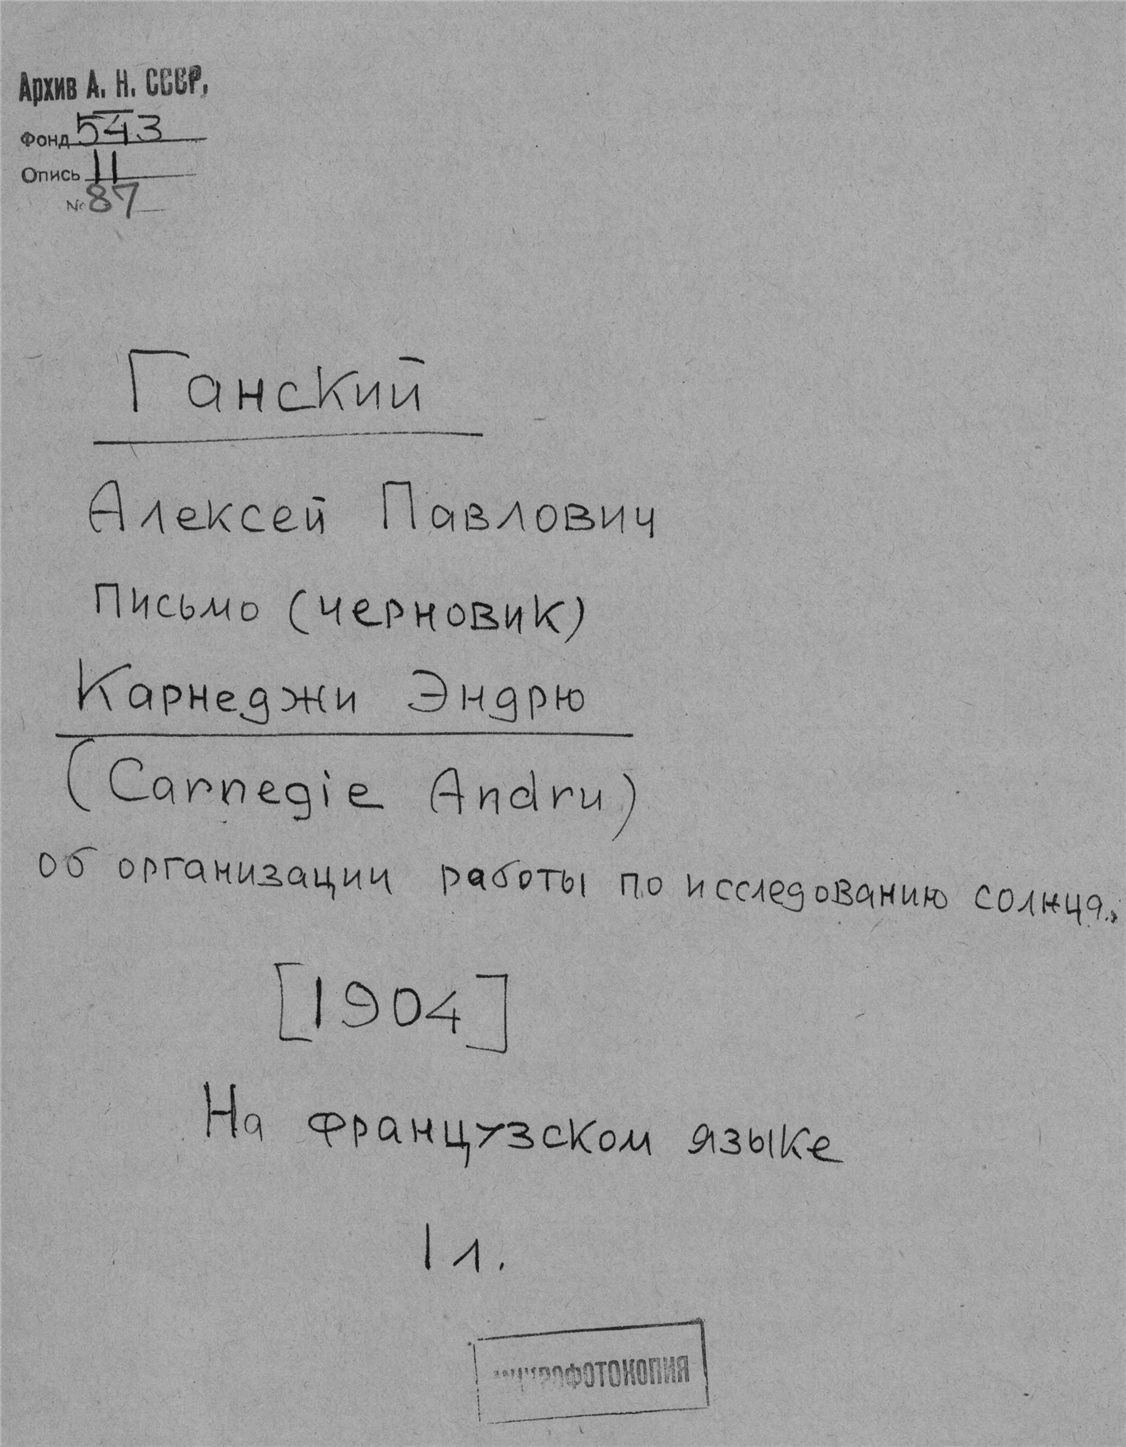 Архив А. Н. СССР,
Фонд 543
Опись II
№ 87
Ганский
Алексей Павлович
письмо (черновик)
Карнеджи Эндрю
(Carnegie Andru)
об организации работы по исследованию солнца.,
[1904]
На французском языке
1 л.
МИКРОФОТОКОПИЯ